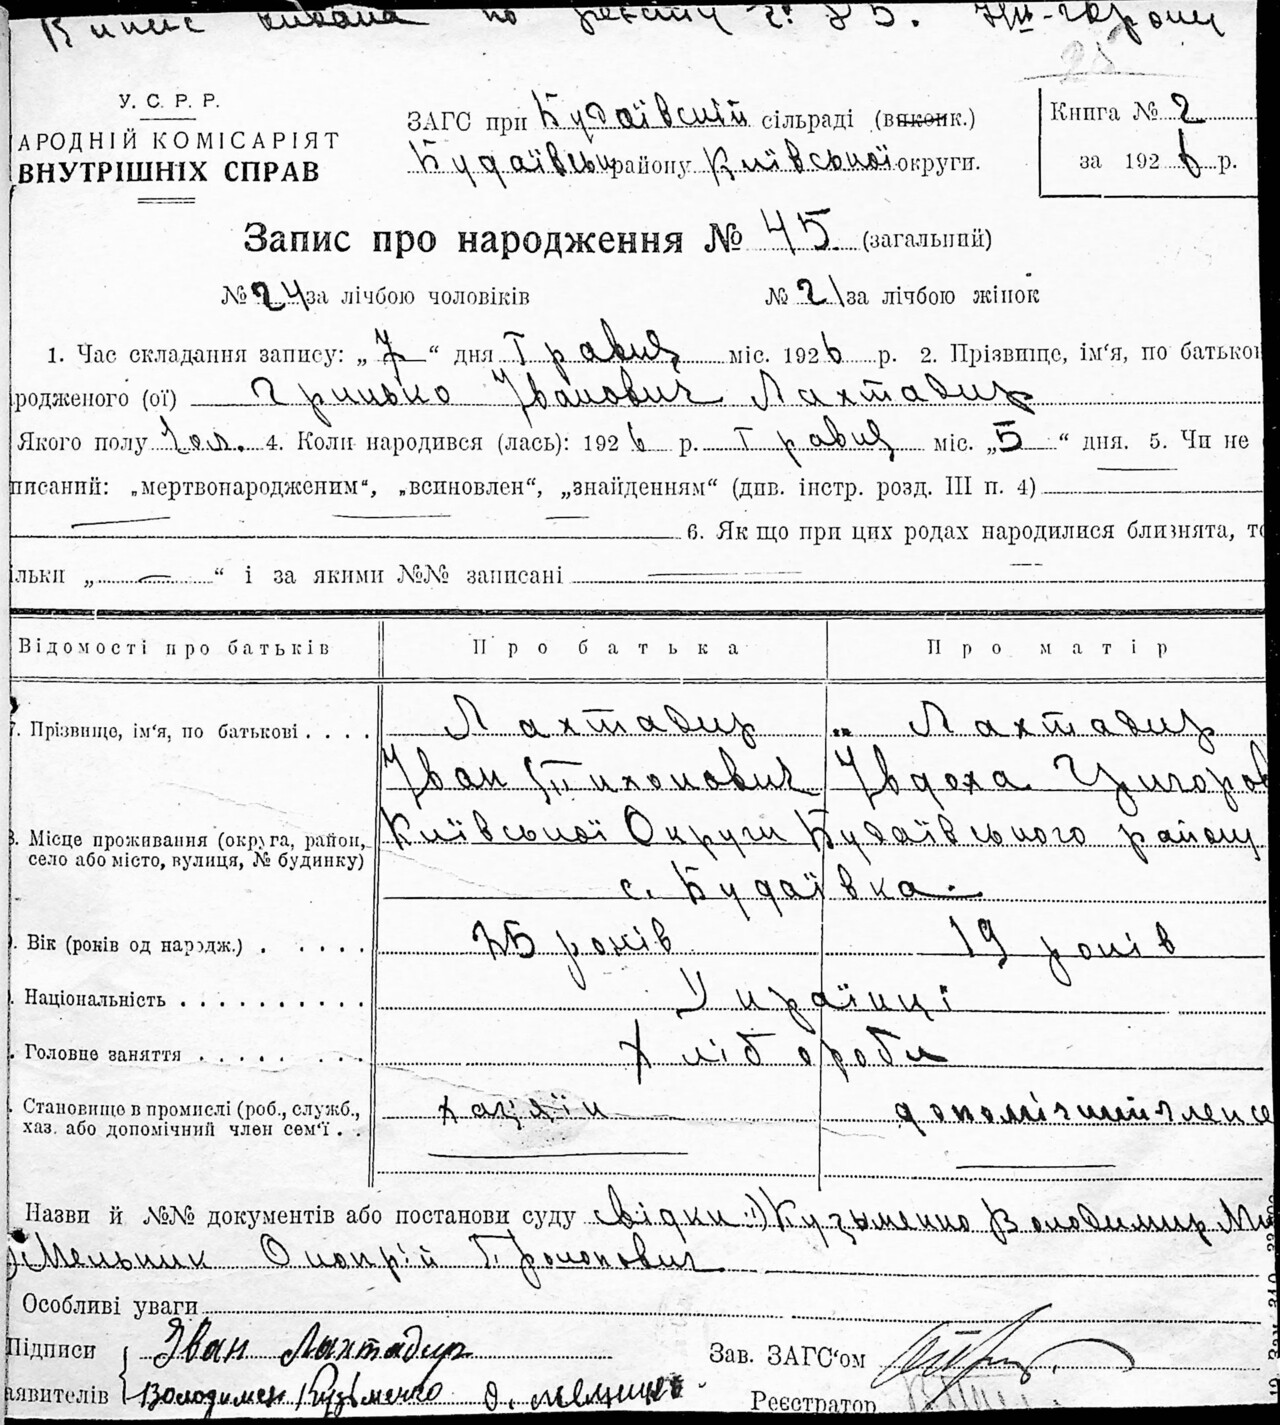 Випис видана по
25
У. С. Р. Р.
АРОДНІЙ КОМІСАРІЯТ
ВНУТРІШНІХ СПРАВ
ЗАГС при Будаївській сільраді (виконк.)
Будаївськ району Київської округи.
Книга № 2
за 1926 р.
Запис про народження № 45 (загальний)
№ 24 за лічбою чоловіків № 21 за лічбою жінок
1. Час складання запису: „7“ дня Травня міс. 1926 р. 2. Прізвище, ім‘я, по батьков
родженого (ої) Грицько Іванович Лахтадир
Якого полу Чол. 4. Коли народився (лась): 1926 р. Травня міс. „5“ дня. 5. Чи не
писаний: „мертвонародженим“, „всиновлен“, „знайденням“ (див. інстр. розд. III п. 4)
6. Як що при цих родах народилися близнята, то
льки „ — “ і за якими №№ записані
Відомості про батьків Про батька Про матір
7. Прізвище, ім‘я, по батькові . . . . Лахтадир Лахтадир
Іван Тихонович Ївдоха Григоров
8. Місце проживання (округа, район, село або місто, вулиця, № будинку) Київської Округи Будаївського району
с. Будаївка
. Вік (років од народж.) . . . . . 25 років 19 років
. Національність . . . . . . . . . . Українці
. Головне заняття . . . . . . . . Хлібороби
. Становище в промислі (роб., служб., хаз. або допомічний член сем‘ї . . хазяїн допомічний член се
Назви й №№ документів або постанови суду свідки: 1) Кузьменко Володимир Ми
) Мельник Онопрій Прокопович
Особливі уваги
Підписи Іван Лахтадир Зав. ЗАГС‘ом
аявителів Володимер Кузьменко О. Мельник Реєстратор